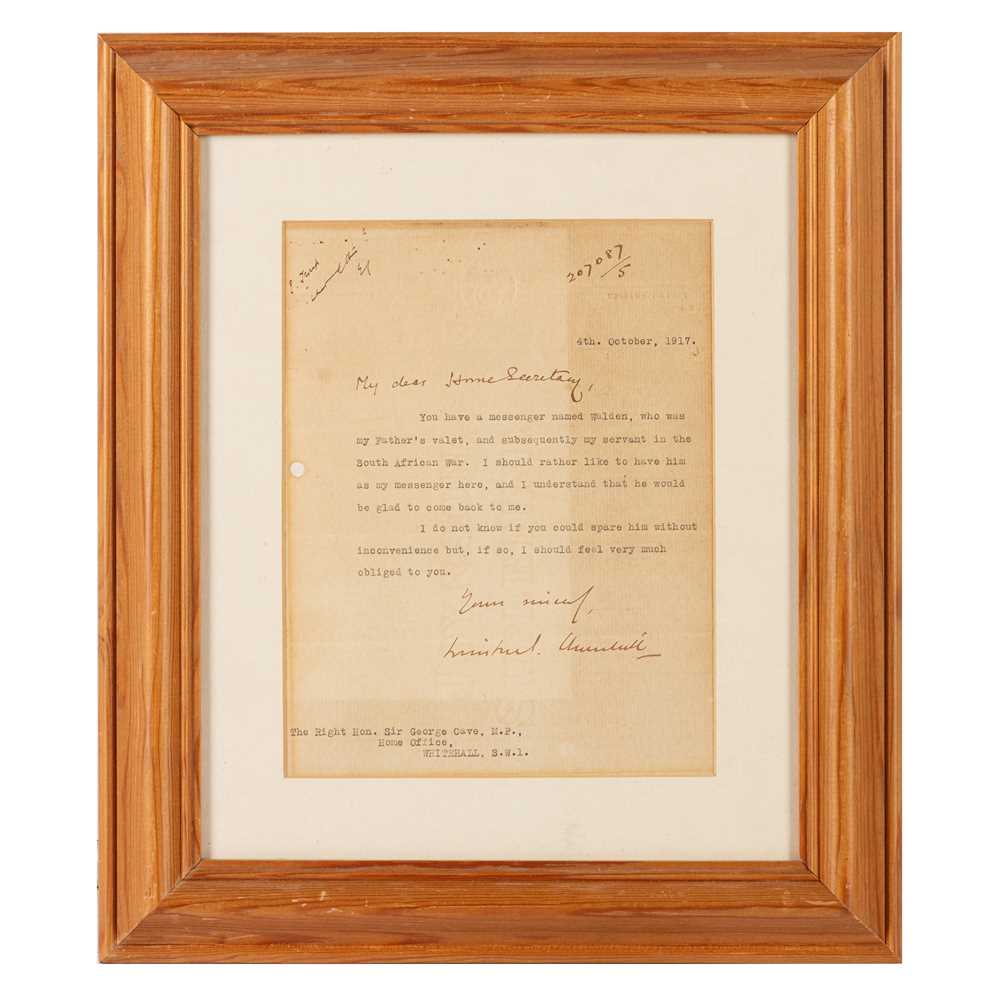 207087/5
4th. October, 1917.
My dear Home Secretary,
You have a messenger named Walden, who was
my Father's valet, and subsequently my servant in the
South African War. I should rather like to have him
as my messenger here, and I understand that he would
be glad to come back to me.
I do not know if you could spare him without
inconvenience but, if so, I should feel very much
obliged to you.
Yours sincerely,
Winston S. Churchill
The Right Hon. Sir George Cave, M.P.,
Home Office,
WHITEHALL, S.W.1.